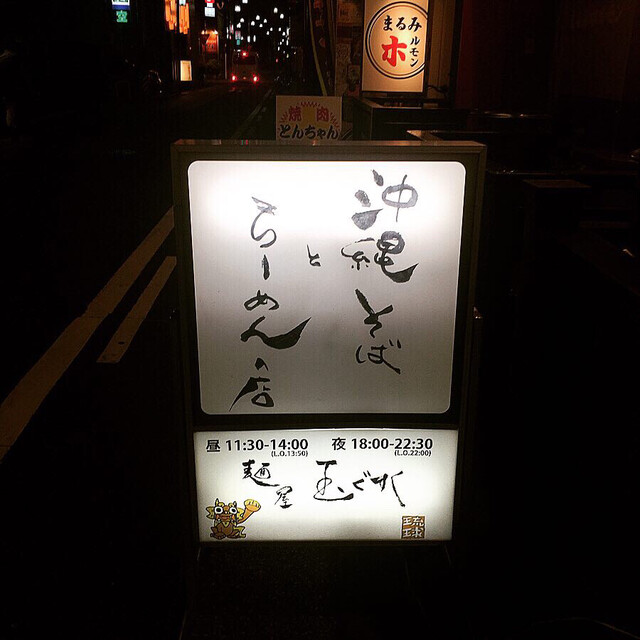 まるみ
ホルモン
焼肉
とんちゃん
沖縄そば
と
らーめんの店
昼 11:30-14:00 夜 18:00-22:30
(L.O.13:50) (L.O.22:00)
麺屋 玉ぐすく
琉球